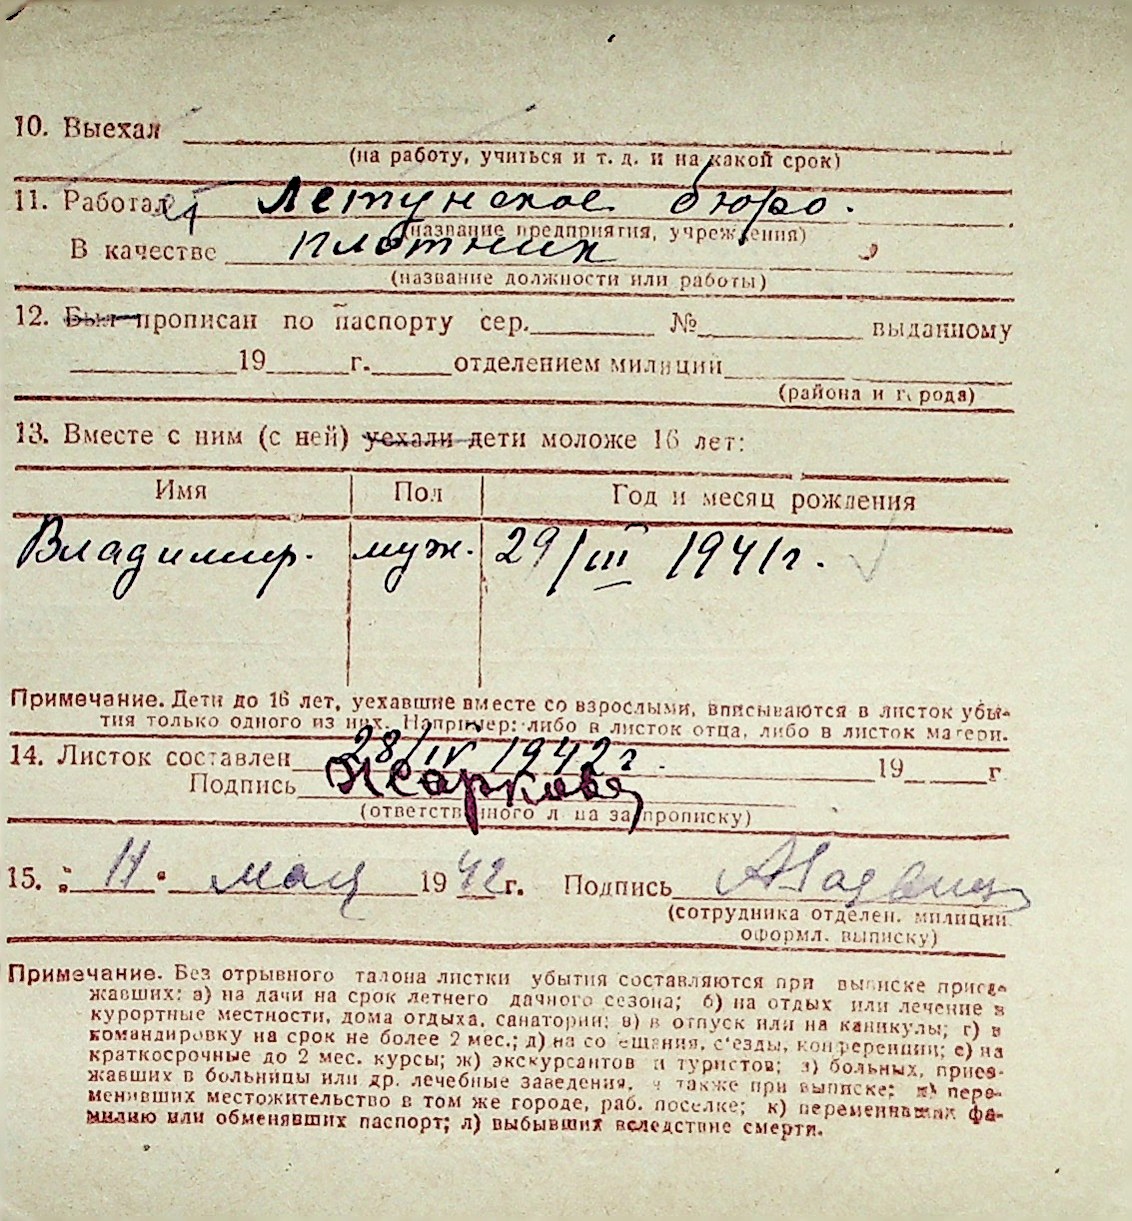 10. Выехал
(на работу, учиться и т. д. и на какой срок)
11. Работает Летунское бюро.
(название предприятия, учреждения)
В качестве плотник
(название должности или работы)
12. Был прописан по паспорту сер. № выданному
19 г. отделением милиции
(района и города)
13. Вместе с ним (с ней) уехали дети моложе 16 лет:
Имя Пол Год и месяц рождения
Владимир. муж. 29/III 1941 г.
Примечание. Дети до 16 лет, уехавшие вместе со взрослыми, вписываются в листок убы-
тия только одного из них. Например: либо в листок отца, либо в листок матери.
14. Листок составлен 28/IV 1942 г. 19 г
Подпись Жаркова
(ответственного лица за прописку)
15. „ 11 " мая 1942 г. Подпись
(сотрудника отделен. милиции
оформл. выписку)
Примечание. Без отрывного талона листки убытия составляются при выписке приез-
жавших: а) на дачи на срок летнего дачного сезона; б) на отдых или лечение в
курортные местности, дома отдыха, санатории; в) в отпуск или на каникулы; г) в
командировку на срок не более 2 мес.; д) на совещания, с'езды, конференции; е) на
краткосрочные до 2 мес. курсы; ж) экскурсантов и туристов; з) больных, приез-
жавших в больницы или др. лечебные заведения, а также при выписке: и) пере-
менивших местожительство в том же городе, раб. поселке; к) переменивших фа-
милию или обменявших паспорт; л) выбывших вследствие смерти.